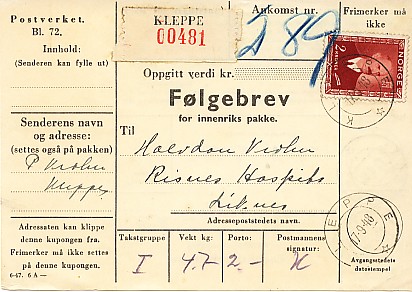 Postverket.
Bl. 72.
Innhold:
(Senderen kan fylle ut)
KLEPPE
00481
Ankomst nr.
289
Frimerker må
ikke
2
NORGE
Oppgitt verdi kr.
Følgebrev
for innenriks pakke.
Senderens navn
og adresse:
(settes også på pakken)
P Vrolm
Kleppe
Til
Halvdan Vrolm
Risnes Hospits
Liknes
Adressepoststedets navn.
Adressaten kan klippe
denne kupongen fra.
Frimerker må ikke settes
på denne kupongen.
6-47. 6 A—
Takstgruppe
I
Vekt kg:
4.7
Porto:
2.-
Postmannens
signatur:
KLEPPE
17-9-48
Avgangsstedets
datostempel